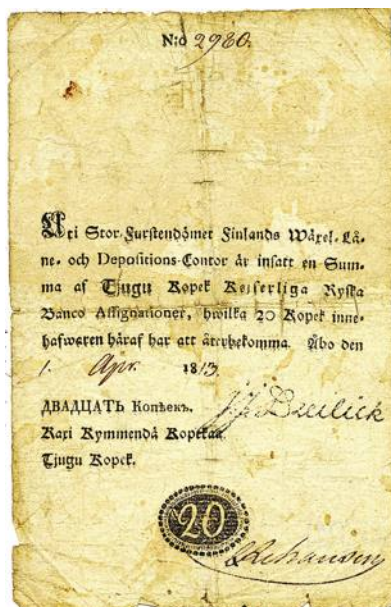 N:o 2980.
Uti Stor-Furstendömet Finlands Wäxel-Lå-
ne- och Depositions-Contor är insatt en Sum-
ma af Tjugu Kopek Kejserliga Ryska
Banco Assignationer, hwilka 20 Kopek inne-
hafwaren häraf har att återbekomma. Åbo den
1. Apr. 1813.
ДВАДЦАТЬ Копѣекъ.
Kaxi Kymmendä Kopekaa.
Tjugu Kopek.
20